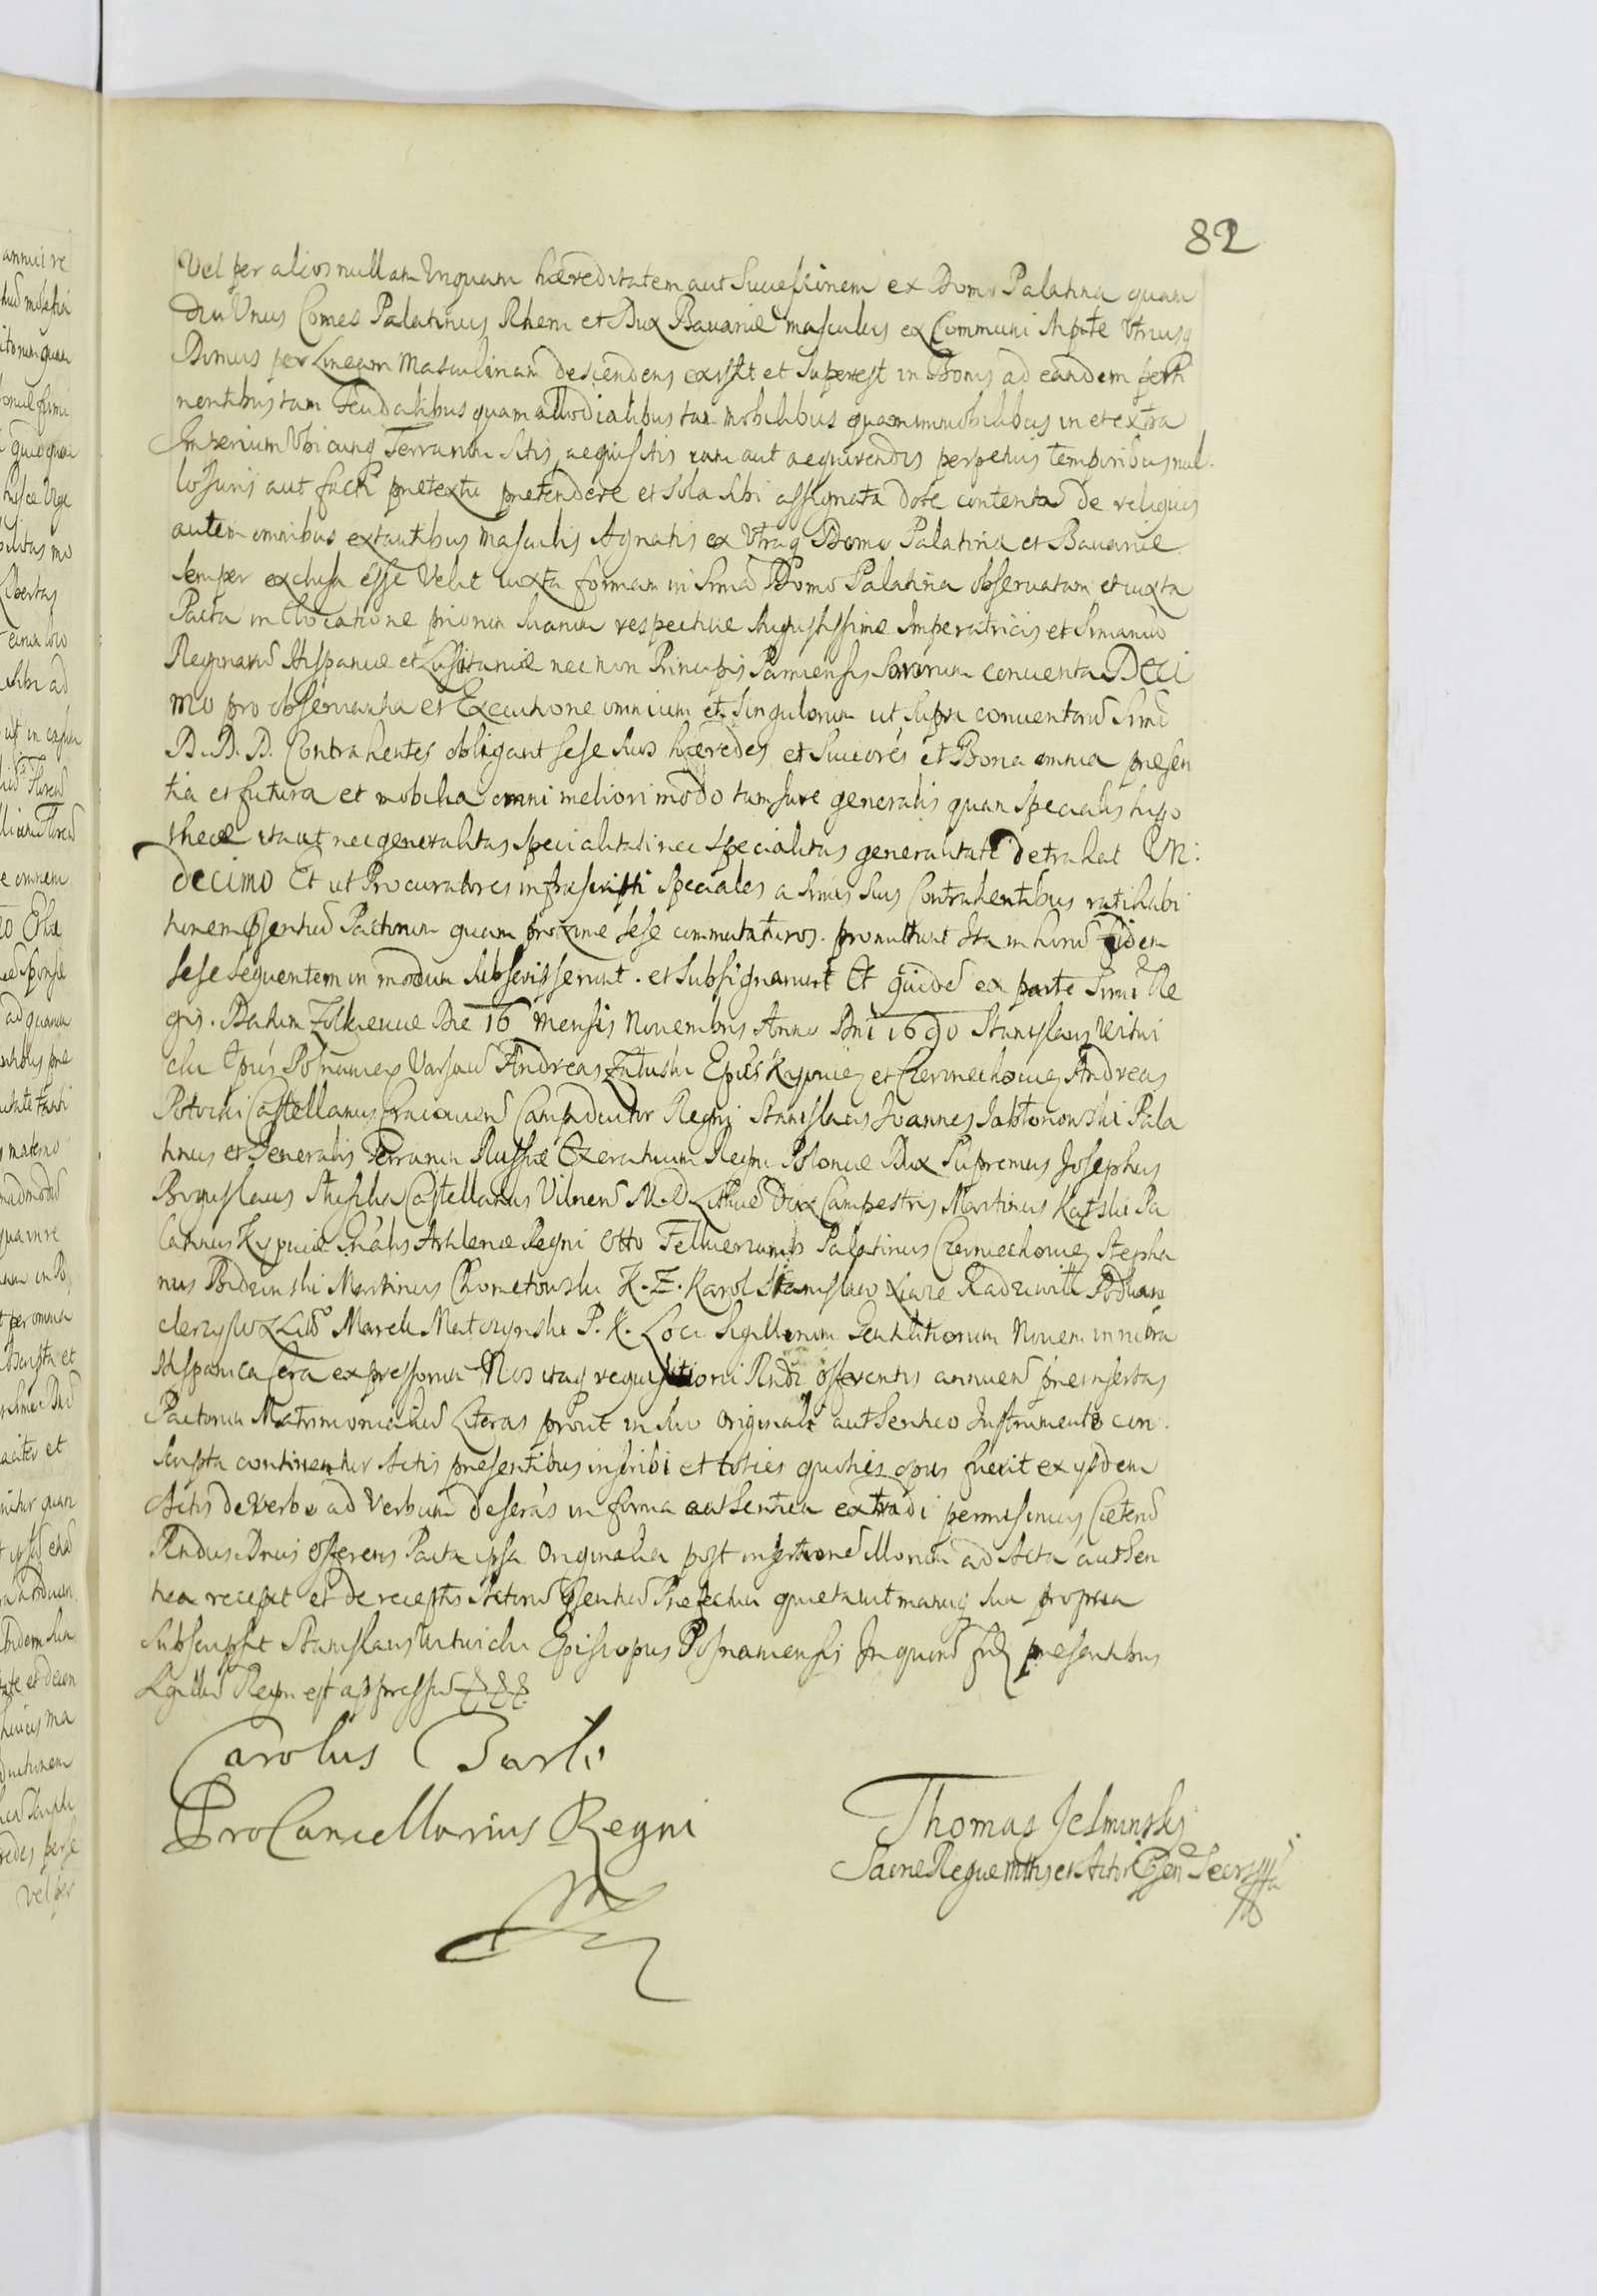 82
Vel per alios nullam Unquam hæreditatem aut Successionem ex Domo Palatina quam
diu Unus Comes Palatinus Rheni et Dux Bavariæ masculus ex Communi stipite Utriusq
Domus per Lineam Masculinam descendens existit et superest in Bonis ad eandem perti
nentibus tam Feudalibus quam allodialibus tam mobilibus quam immobilibus in et extra
Imperium Ubicunq Terrarum sitis, aequisitis iam aut aequirendis perpetuis temporibus nul
lo Iuris aut facti pretextu pretendere et sola sibi assignata dote contenta de reliquis
autem omnibus extantibus masculis Agnatis ex Utraq Domo Palatina et Bavariæ
semper exclusa esse Velit iuxta formam in Srma Domo Palatina observatam et iuxta
Pacta in Elocatione priorum suarum respective Augustissime Imperatricis et Srmarum
Reginarum Hispaniæ et Lusitaniæ nec non Principis Parmensis Sororum conventa Deci
mo pro observantia et Executione omnium et singulorum ut supra conventorum Srmi
D. D. D. Contrahentes obligant sese suos hæredes et Succores et Bona omnia presen
tia et futura et mobilia omni meliori modo tam Iure generalis quam specialis hypo
thecæ ita ut nec generalitas specialitati nec specialitas generalitati detrahat Un:
decimo Et ut Procuratores infrascripti speciales a Srmis suis Contrahentibus ratihabi
tionem psentium Pactorum quam proxime sese commutaturos. promittunt Ita in horum fidem
sese sequentem in modum subscripserunt. et subsignarunt Et quidem ex parte Srmi Re
gis. Datum Zolkieviæ Die 16 mensis Novembris Anno Dni 1690 Stanislaus Witwi
cki Epus Posnanien Varsavien Andreas Zaluski Epus Kyoviens et Czerniechovieñ Andreas
Potocki Castellanus Cracovien Campiductor Regni Stanislaus Joannes Jabłonowski Pala
tinus et Generalis Terrarum Russiæ Exercituum Regni Poloniæ Dux Supremus Josephus
Boguslaus Słuszka Castellanus Vilnen M. D. Lithuæ Dux Campestris Martinus Kątski Pa
latinus Kyoviæ Gnalis Artileriæ Regni Otto Felkierzamb Palatinus Czerniechovieñ Stepha
nus Bidzinski Martinus Chometowski K. Z. Karol Stanislaw Xiąze Radziwiłł Podkan
clerzy W X Litt Marek Matczynski P. K. Loci Sigillorum Gentilitiorum Novem in rubra
Hispanica Cera expressorum Nos itaq requisitioni Rndi offerentis annuen preinsertas
Pactorum Matrimonialium Literas prout in suo originali authentico Instrumento con
scripta continentur Actis presentibus inscribi et toties quoties opus fuerit ex ijsdem
Actis de Verbo ad Verbum descras in forma authentica extradi permisimus Cæterum
Rndus Dnus offerens Pacta ipsa Originalia post insertionem illorum ad Acta authen
tica recepit et de receptis Actorum psentium Prefectum quietavit manuq sua propria
subscripsit Stanislaus Witwicki Episcopus Posnaniensis In quorum fidem presentibus
Sigillum Regni est appressum
Carolus Tarlo
ProCancellarius Regni
Thomas Jelminski
Sacræ Regiæ Mttis et Actor Psen Secrius